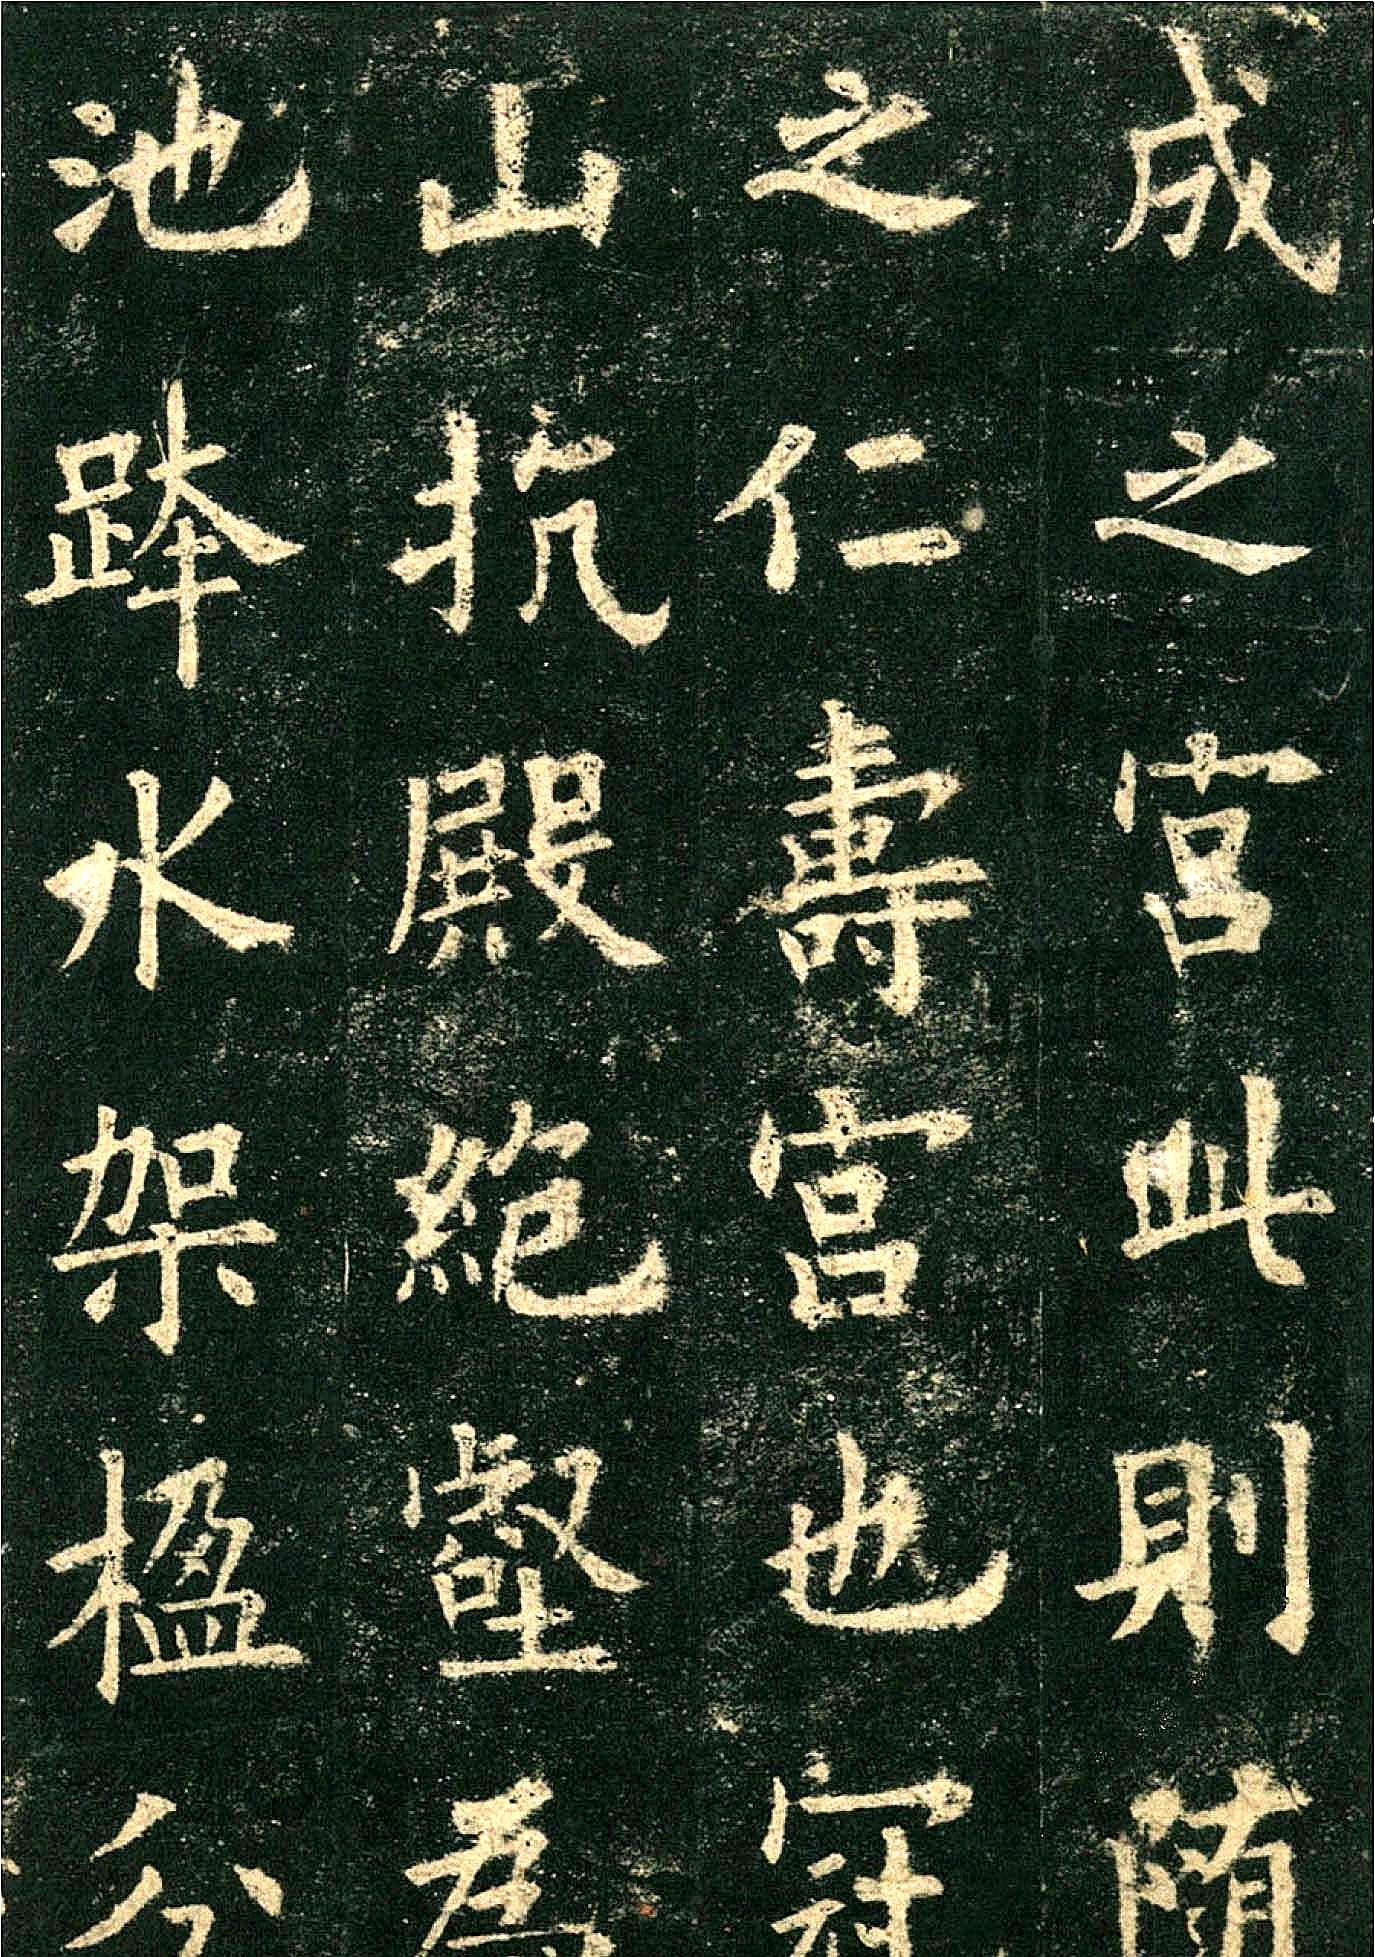 成之宮此則隨
之仁壽宮也冠
山抗殿絕壑為
池跨水架楹分